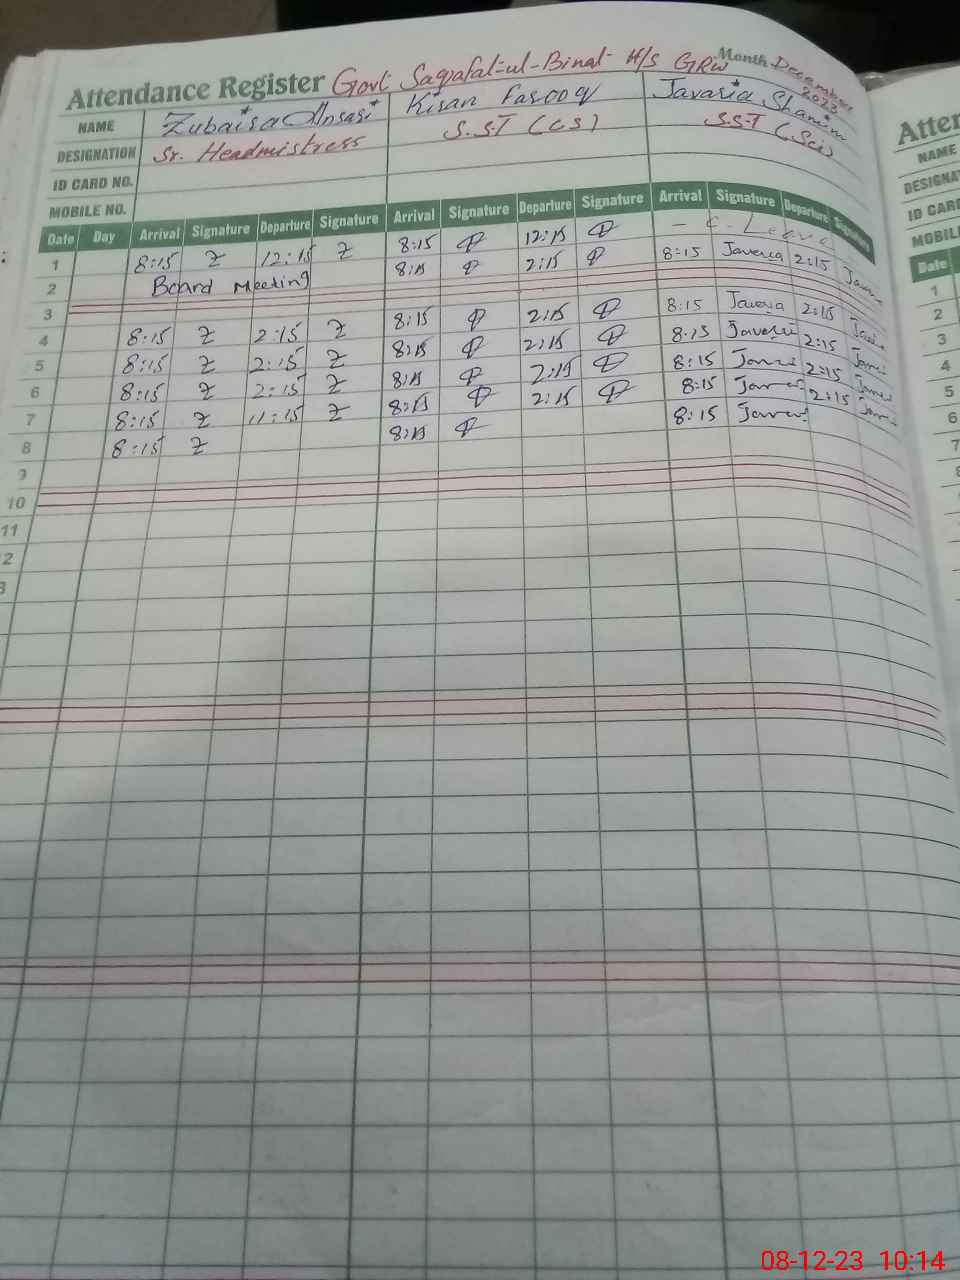 Attendance Register Govt. Saqafat-ul-Binat H/S GRW Month December 2023
NAME Zubaira Ansari Kiran Farooq Javaria Shamim
DESIGNATION Sr. Headmistress S.S.T (CS) S.S.T (Sci)
ID CARD NO.
MOBILE NO.
Date Day Arrival Signature Departure Signature Arrival Signature Departure Signature Arrival Signature Departure Signature
1 8:15 Z 12:15 Z 8:15 12:15 - C. Leave
2 Board Meeting 8:15 2:15 8:15 Javeria 2:15
3
4 8:15 Z 2:15 Z 8:15 2:15 8:15 Javeria 2:15
5 8:15 Z 2:15 Z 8:15 2:15 8:15 2:15
6 8:15 Z 2:15 Z 8:15 2:15 8:15 2:15
7 8:15 Z 11:15 Z 8:15 2:15 8:15 2:15
8 8:15 Z 8:15 8:15
9
10
11
2
3
Atten
NAME
DESIGNA
ID CARD
MOBIL
Date
1
2
3
4
5
6
7
08-12-23 10:14